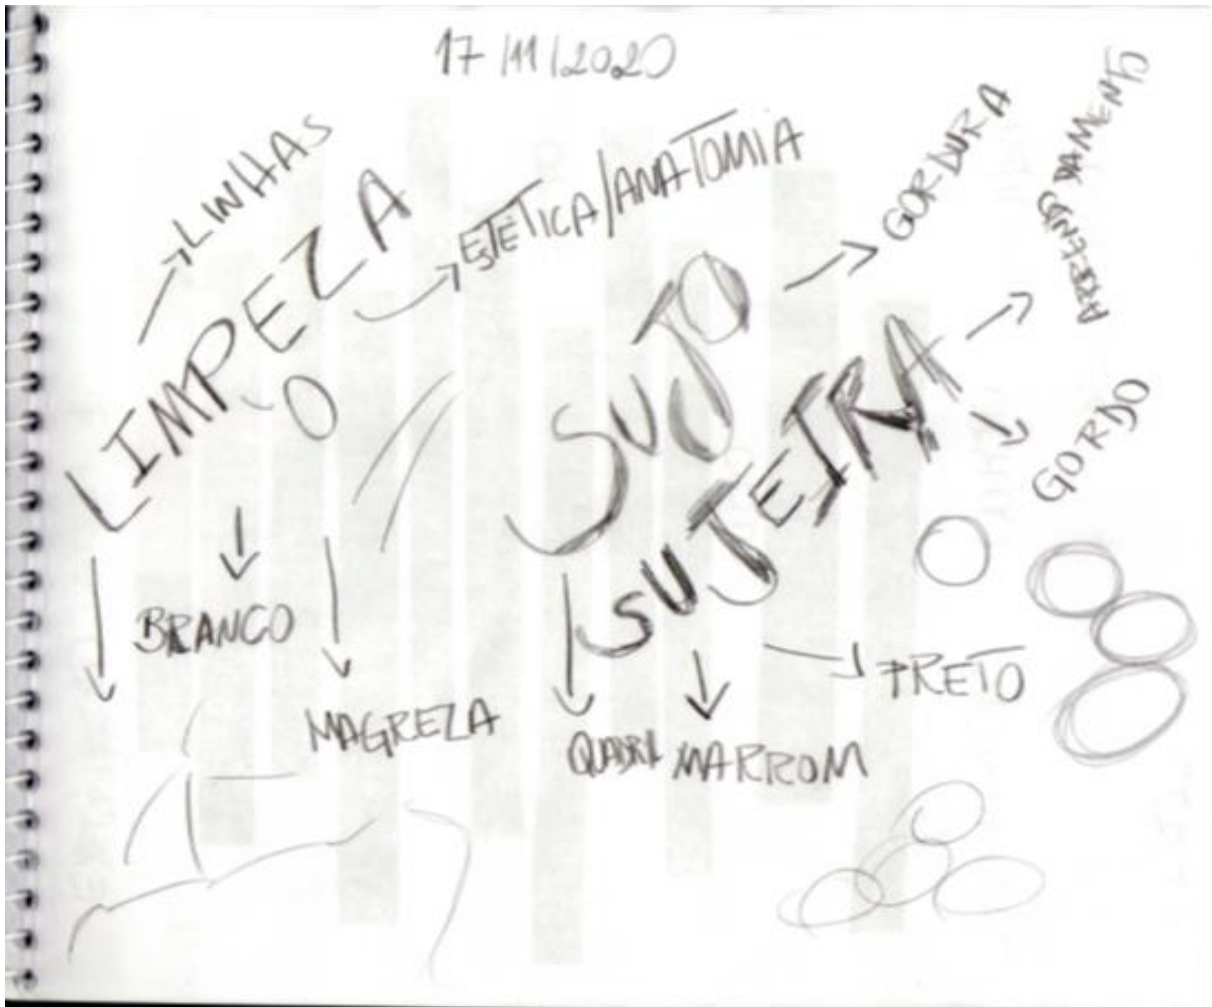 17/11/2020
LINHAS
LIMPEZA
O
ESTÉTICA/ANATOMIA
BRANCO
MAGREZA
SUJO
SUJEIRA
GORDURA
GORDO
PRETO
QUADRIL
MARROM